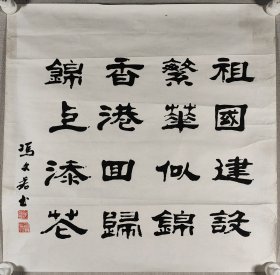 祖國建設
繁華似錦
香港回歸
錦上添花
馮大若書